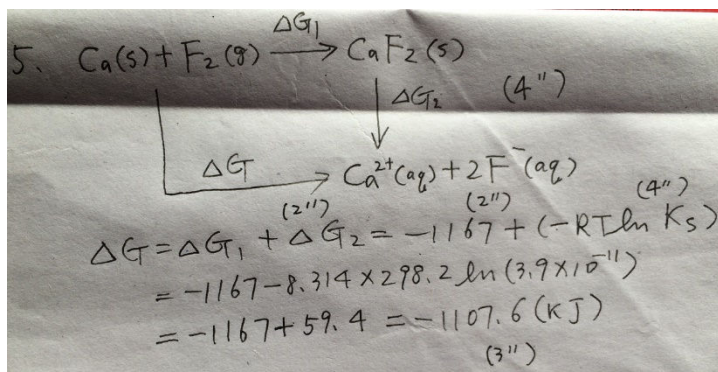 5. Ca(s) + F₂(g) —ΔG₁→ CaF₂(s)
↓ΔG₂ (4")
ΔG → Ca²⁺(aq) + 2F⁻(aq)
(2") (2") (4")
ΔG = ΔG₁ + ΔG₂ = -1167 + (-RT ln Ks)
= -1167 - 8.314 × 298.2 ln (3.9×10⁻¹¹)
= -1167 + 59.4 = -1107.6 (KJ)
(3")